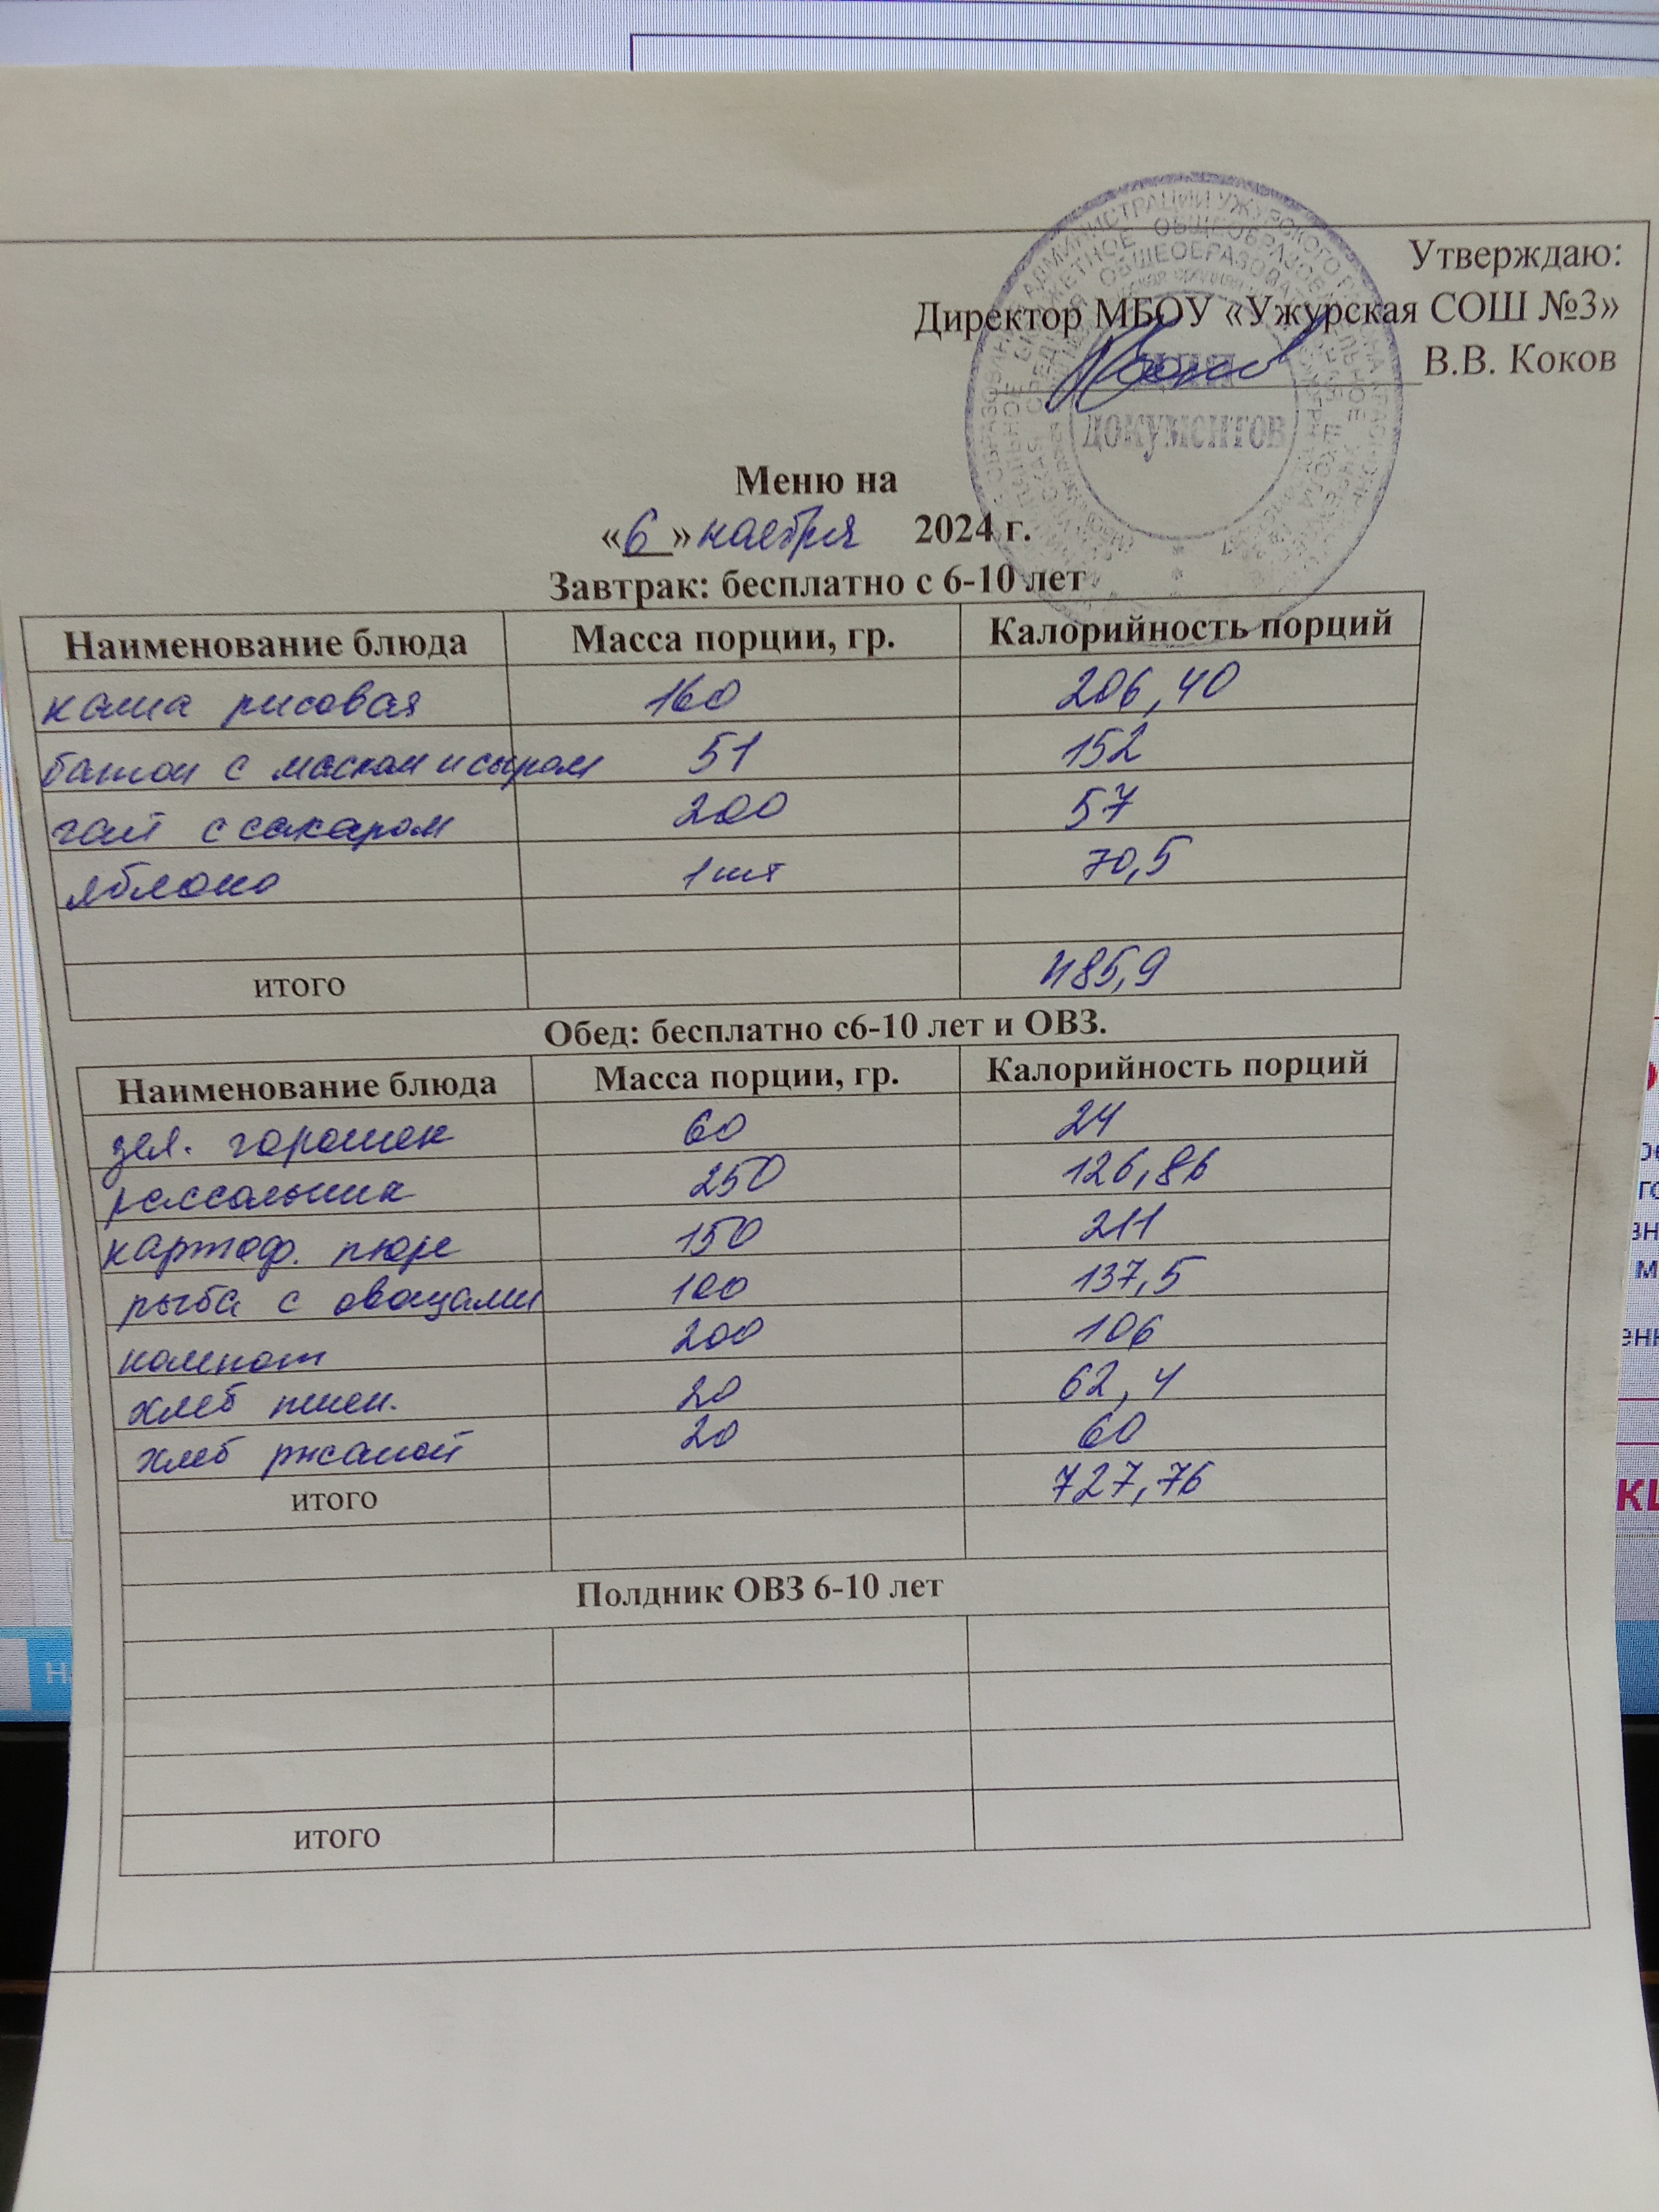 Утверждаю:
Директор МБОУ «Ужурская СОШ №3»
В.В. Коков
документов
Меню на
«6» ноября 2024 г.
Завтрак: бесплатно с 6-10 лет
Наименование блюда Масса порции, гр. Калорийность порций
каша рисовая 160 206,40
батон с маслом и сыром 51 152
чай с сахаром 200 57
яблоко 1 шт 70,5
итого 485,9
Обед: бесплатно с6-10 лет и ОВЗ.
Наименование блюда Масса порции, гр. Калорийность порций
зел. горошек 60 24
рассольник 250 126,86
картоф. пюре 150 211
рыба с овощами 100 137,5
компот 200 106
хлеб пшен. 20 62,4
хлеб ржаной 20 60
итого 727,76
Полдник ОВЗ 6-10 лет
итого